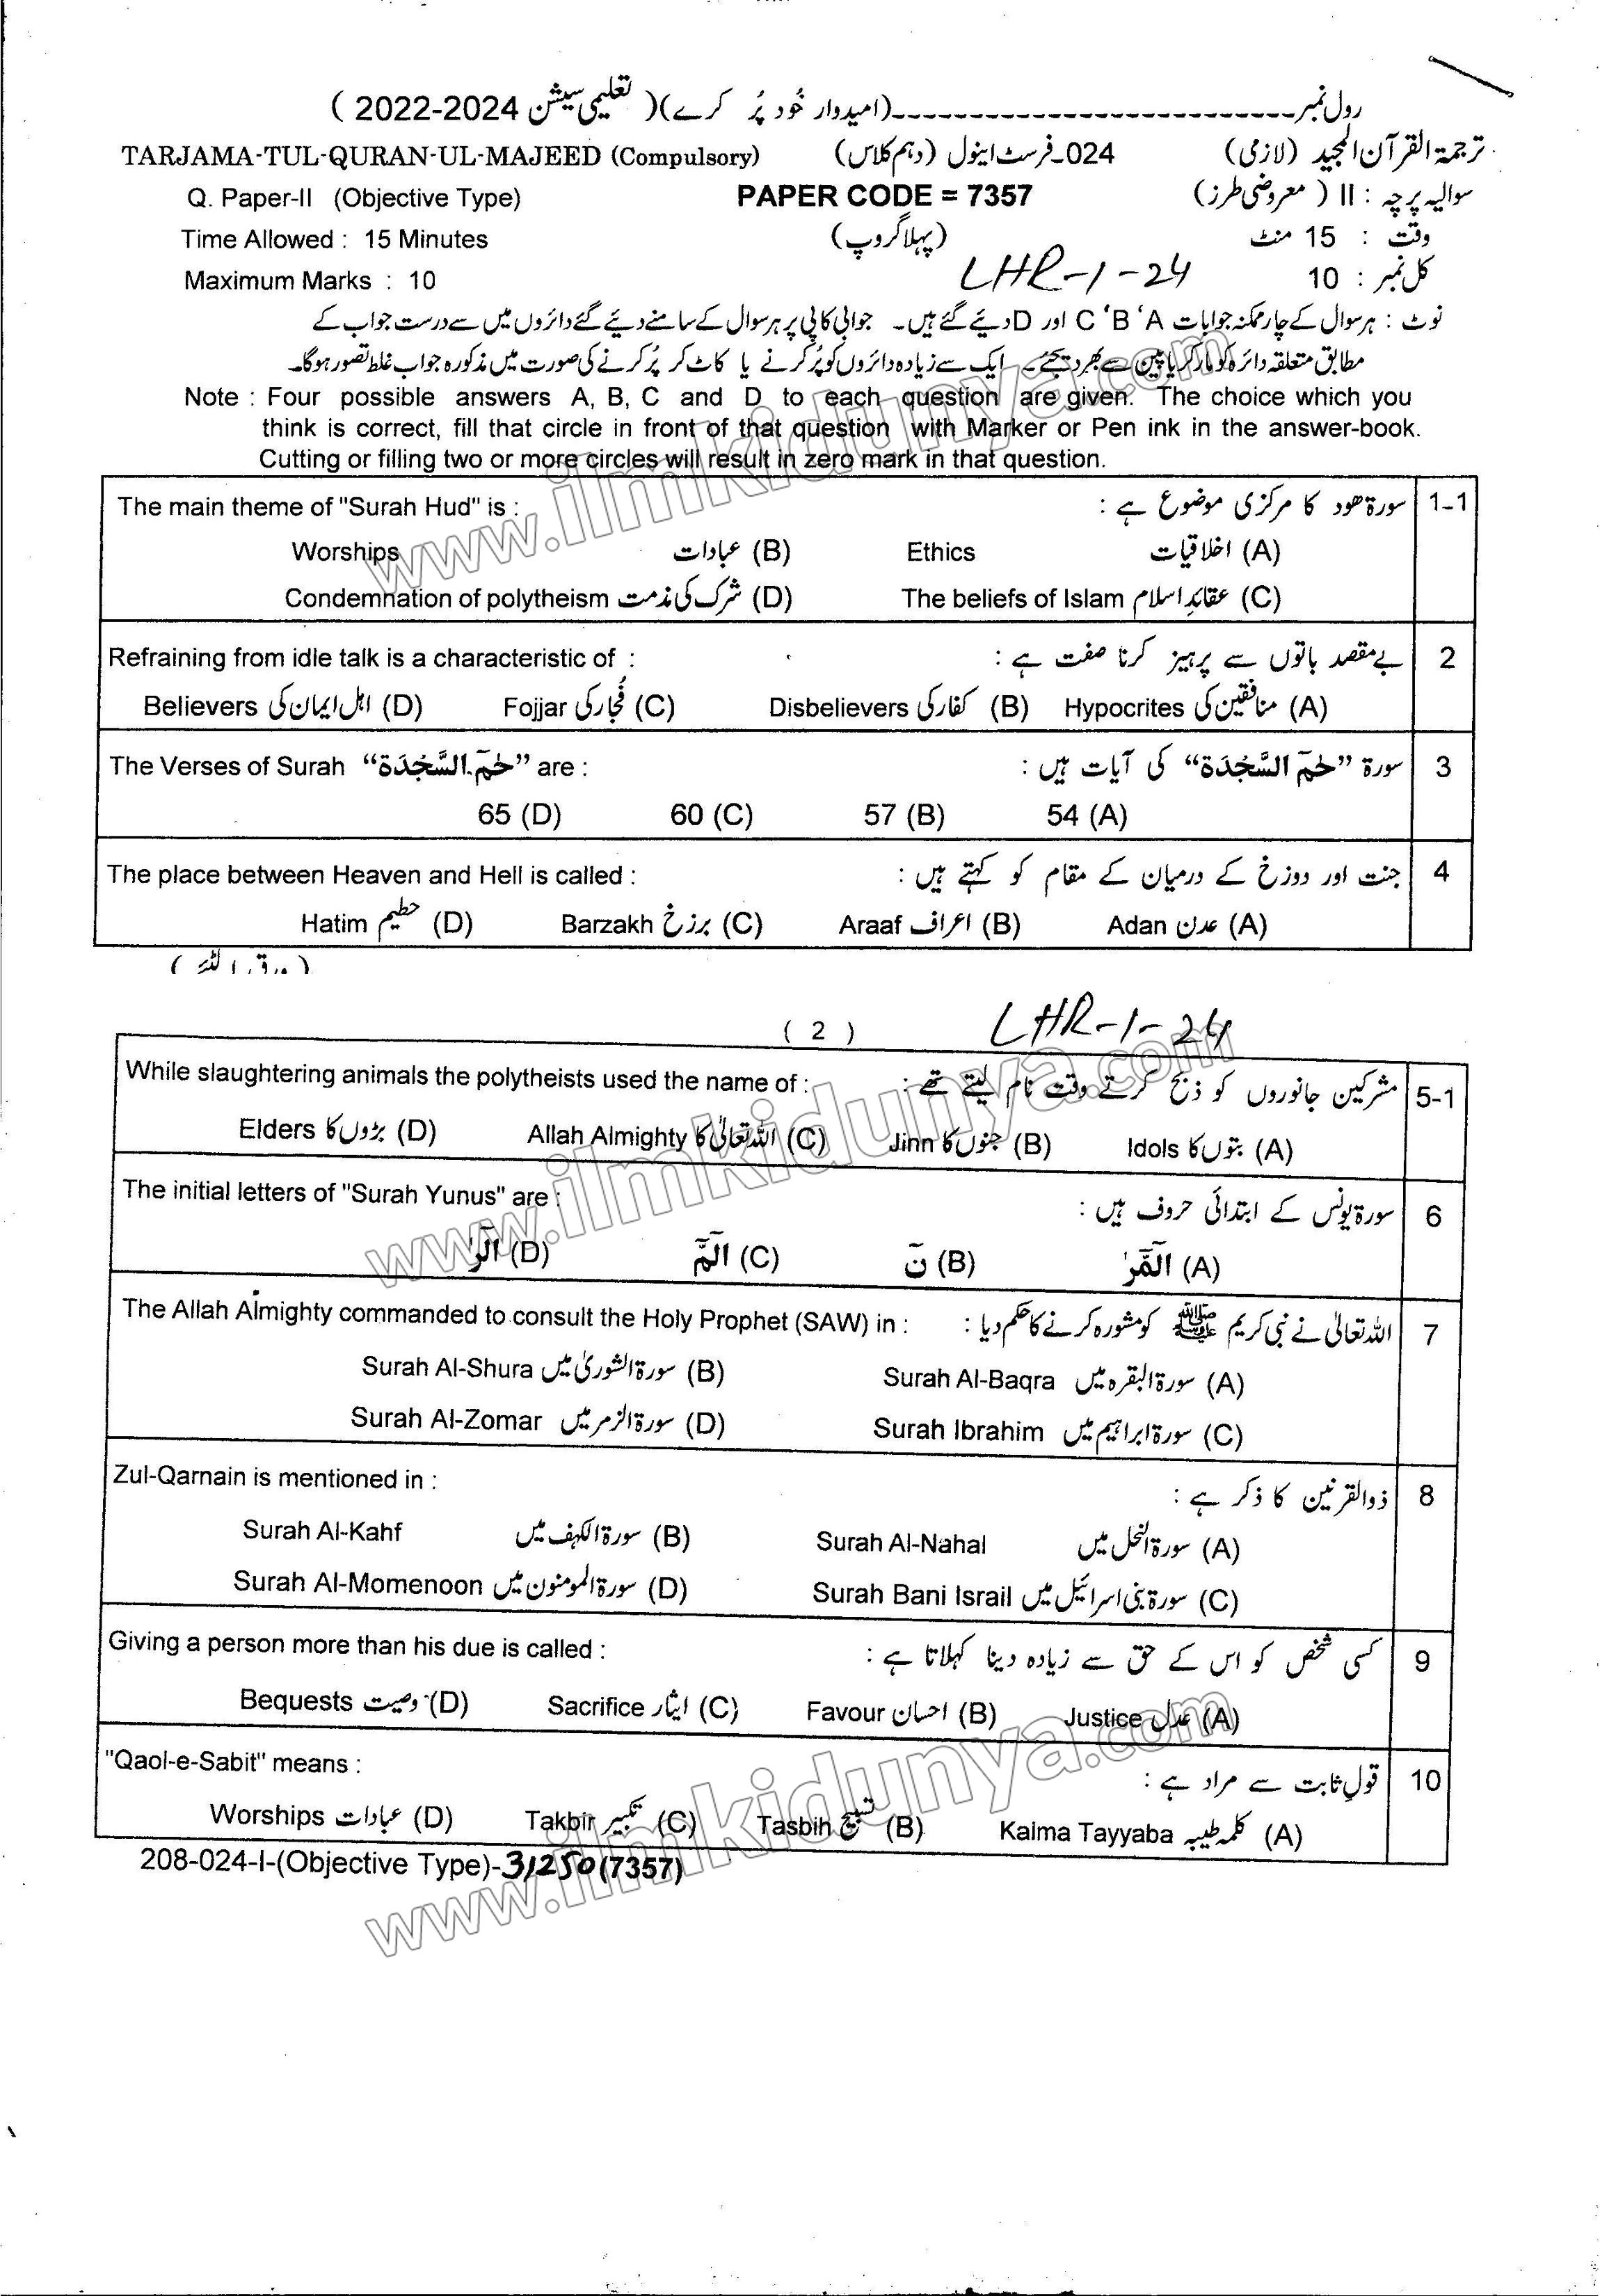 رول نمبر---------------------------(امیدوار خُود پُر کرے)( تعلیمی سیشن 2022-2024 )
ترجمۃ القرآن المجید (لازمی) 024۔فرسٹ اینول (دہم کلاس) TARJAMA-TUL-QURAN-UL-MAJEED (Compulsory)
سوالیہ پرچہ : II ( معروضی طرز) PAPER CODE = 7357 Q. Paper-II (Objective Type)
وقت : 15 منٹ (پہلا گروپ) Time Allowed : 15 Minutes
کل نمبر : 10 LHR-1-24 Maximum Marks : 10
نوٹ : ہر سوال کے چار ممکنہ جوابات C ‘B ‘A اور D دیئے گئے ہیں۔ جوابی کاپی پر ہر سوال کے سامنے دیئے گئے دائروں میں سے درست جواب کے
مطابق متعلقہ دائرہ کو مارکر یا پین سے بھر دیجئے۔ ایک سے زیادہ دائروں کو پُر کرنے یا کاٹ کر پُر کرنے کی صورت میں مذکورہ جواب غلط تصور ہوگا۔
Note : Four possible answers A, B, C and D to each question are given. The choice which you
think is correct, fill that circle in front of that question with Marker or Pen ink in the answer-book.
Cutting or filling two or more circles will result in zero mark in that question.
The main theme of "Surah Hud" is : سورۃ ھود کا مرکزی موضوع ہے : 1-1
Worships عبادات (B) Ethics اخلاقیات (A)
Condemnation of polytheism شرک کی مذمت (D) The beliefs of Islam عقائدِ اسلام (C)
Refraining from idle talk is a characteristic of : بے مقصد باتوں سے پرہیز کرنا صفت ہے : 2
Believers اہل ایمان کی (D) Fojjar فُجار کی (C) Disbelievers کفار کی (B) Hypocrites منافقین کی (A)
The Verses of Surah “حٰمٓ السَّجْدَة” are : سورۃ “حٰمٓ السَّجْدَة” کی آیات ہیں : 3
65 (D) 60 (C) 57 (B) 54 (A)
The place between Heaven and Hell is called : جنت اور دوزخ کے درمیان کے مقام کو کہتے ہیں : 4
Hatim حطیم (D) Barzakh برزخ (C) Araaf اعراف (B) Adan عدن (A)
(ورق الٹئے)
( 2 ) LHR-1-24
While slaughtering animals the polytheists used the name of : مشرکین جانوروں کو ذبح کرتے وقت نام لیتے تھے : 5-1
Elders بڑوں کا (D) Allah Almighty اللہ تعالیٰ کا (C) Jinn جنوں کا (B) Idols بتوں کا (A)
The initial letters of "Surah Yunus" are : سورۃ یونس کے ابتدائی حروف ہیں : 6
الٓرٰ (D) الٓمّٓ (C) نٓ (B) الٓمّٓرٰ (A)
The Allah Almighty commanded to consult the Holy Prophet (SAW) in : اللہ تعالیٰ نے نبی کریم ﷺ کو مشورہ کرنے کا حکم دیا : 7
Surah Al-Shura سورۃ الشوریٰ میں (B) Surah Al-Baqra سورۃ البقرہ میں (A)
Surah Al-Zomar سورۃ الزمر میں (D) Surah Ibrahim سورۃ ابراہیم میں (C)
Zul-Qarnain is mentioned in : ذوالقرنین کا ذکر ہے : 8
Surah Al-Kahf سورۃ الکہف میں (B) Surah Al-Nahal سورۃ النحل میں (A)
Surah Al-Momenoon سورۃ المومنون میں (D) Surah Bani Israil سورۃ بنی اسرائیل میں (C)
Giving a person more than his due is called : کسی شخص کو اس کے حق سے زیادہ دینا کہلاتا ہے : 9
Bequests وصیت (D) Sacrifice ایثار (C) Favour احسان (B) Justice عدل (A)
"Qaol-e-Sabit" means : قولِ ثابت سے مراد ہے : 10
Worships عبادات (D) Takbir تکبیر (C) Tasbih تسبیح (B) Kalma Tayyaba کلمہ طیبہ (A)
208-024-I-(Objective Type)-31250(7357)
www.ilmkidunya.com
www.ilmkidunya.com
www.ilmkidunya.com